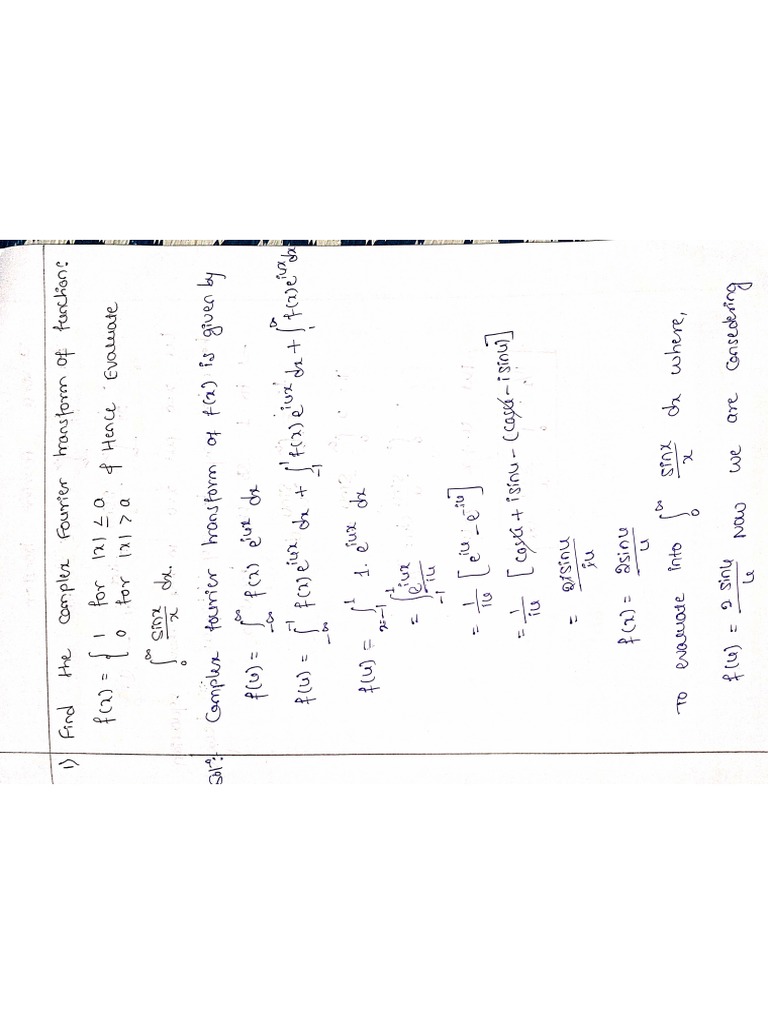 1) Find the complex Fourier transform of function:
f(x) = { 1 for |x| ≤ a & Hence Evaluate
0 for |x| > a
∫₀^∞ sinx/x dx.
Solⁿ: Complex fourier transform of f(x) is given by
f(u) = ∫_{-∞}^{∞} f(x) e^{iux} dx
f(u) = ∫_{-∞}^{-1} f(x) e^{iux} dx + ∫_{-1}^{1} f(x) e^{iux} dx + ∫_{1}^{∞} f(x) e^{iux} dx
f(u) = ∫_{x=-1}^{1} 1. e^{iux} dx
= ∫_{-1}^{-1} e^{iux}/iu
= 1/iu [e^{iu} - e^{-iu}]
= 1/iu [cosu + i sinu - (cosu - i sinu)]
= 2isinu/iu
f(x) = 2sinu/u
To evaluate into ∫₀^∞ sinx/x dx where,
f(u) = 2 sinu/u Now we are consedering